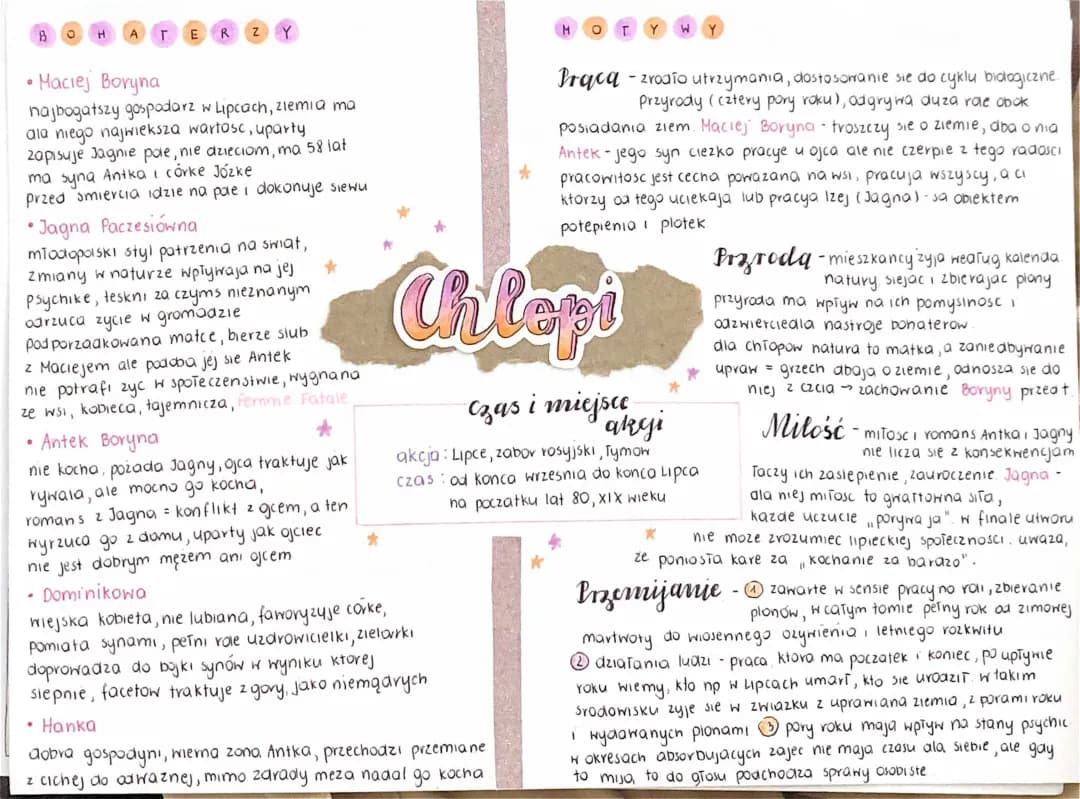 BOHATERZY
• Maciej Boryna
najbogatszy gospodarz w Lipcach, ziemia ma
dla niego największa wartosc, uparty
zapisuje Jagnie pole, nie dzieciom, ma 58 lat
ma syna Antka i córke Józke
przed smiercia idzie na pole i dokonuje siewu
• Jagna Paczesiówna
młodopolski styl patrzenia na swiat,
zmiany w naturze wpływaja na jej
psychike, teskni za czyms nieznanym
odrzuca zycie w gromadzie
podporzadkowana matce, bierze slub
z Maciejem ale podoba jej sie Antek
nie potrafi zyc w społeczenstwie, wygnana
ze wsi, kobieca, tajemnicza, femme Fatale
• Antek Boryna
nie kocha, pozada Jagny, ojca traktuje jak
rywala, ale mocno go kocha,
romans z Jagna = konflikt z ojcem, a ten
wyrzuca go z domu, uparty jak ojciec
nie jest dobrym mężem ani ojcem
• Dominikowa
wiejska kobieta, nie lubiana, faworyzuje córke,
pomiata synami, pełni role uzdrowicielki, zielarki
doprowadza do bojki synów w wyniku ktorej
slepnie, facetow traktuje z gory, jako niemądrych
• Hanka
dobra gospodyni, wierna zona Antka, przechodzi przemiane
z cichej do odwaznej, mimo zdrady meza nadal go kocha
Chłopi
Czas i miejsce
akcji
akcja: Lipce, zabor rosyjski, Tymow
czas: od konca wrzesnia do konca Lipca
na poczatku lat 80, XIX wieku
MOTYWY
Praca - zrodło utrzymania, dostosowanie sie do cyklu biologiczne.
Przyrody (cztery pory roku), odgrywa duza role obok
posiadania ziem. Maciej Boryna - troszczy sie o ziemie, dba o nia
Antek - jego syn ciezko pracuje u ojca ale nie czerpie z tego radosci
pracowitosc jest cecha powazana na wsi, pracuja wszyscy, a ci
ktorzy od tego uciekaja lub pracuja lzej (Jagna) - sa obiektem
potepienia i plotek
Przyroda - mieszkancy zyja według kalenda.
natury, siejac i zbierajac plony
przyroda ma wpływ na ich pomyslnosc i
odzwierciedla nastroje bohaterow
dla chłopow natura to matka, a zaniedbywanie
upraw = grzech dbaja o ziemie, odnosza sie do
niej z czcia → zachowanie Boryny przed ł.
Miłość - miłosc i romans Antka i Jagny
nie licza sie z konsekwencjam
łaczy ich zaslepienie, zauroczenie. Jagna -
dla niej miłosc to gwałtowna siła,
kazde uczucie „porywa ja". w finale utworu
nie moze zrozumiec lipieckiej społecznosci. uwaza,
ze poniosła kare za „kochanie za bardzo".
Przemijanie - ① zawarte w sensie pracy na roli, zbieranie
plonów, w całym tomie pełny rok od zimowej
martwoty do wiosennego ozywienia i letniego rozkwitu
② działania ludzi - praca, ktora ma poczatek i koniec, po upływie
roku wiemy, kto np w Lipcach umarł, kto sie urodził. w takim
srodowisku zyje sie w zwiazku z uprawiana ziemia, z porami roku
i wydawanych plonami ③ pory roku maja wpływ na stany psychic.
w okresach absorbujacych zajec nie maja czasu dla siebie, ale gdy
to mija, to do głosu podchodza sprawy osobiste